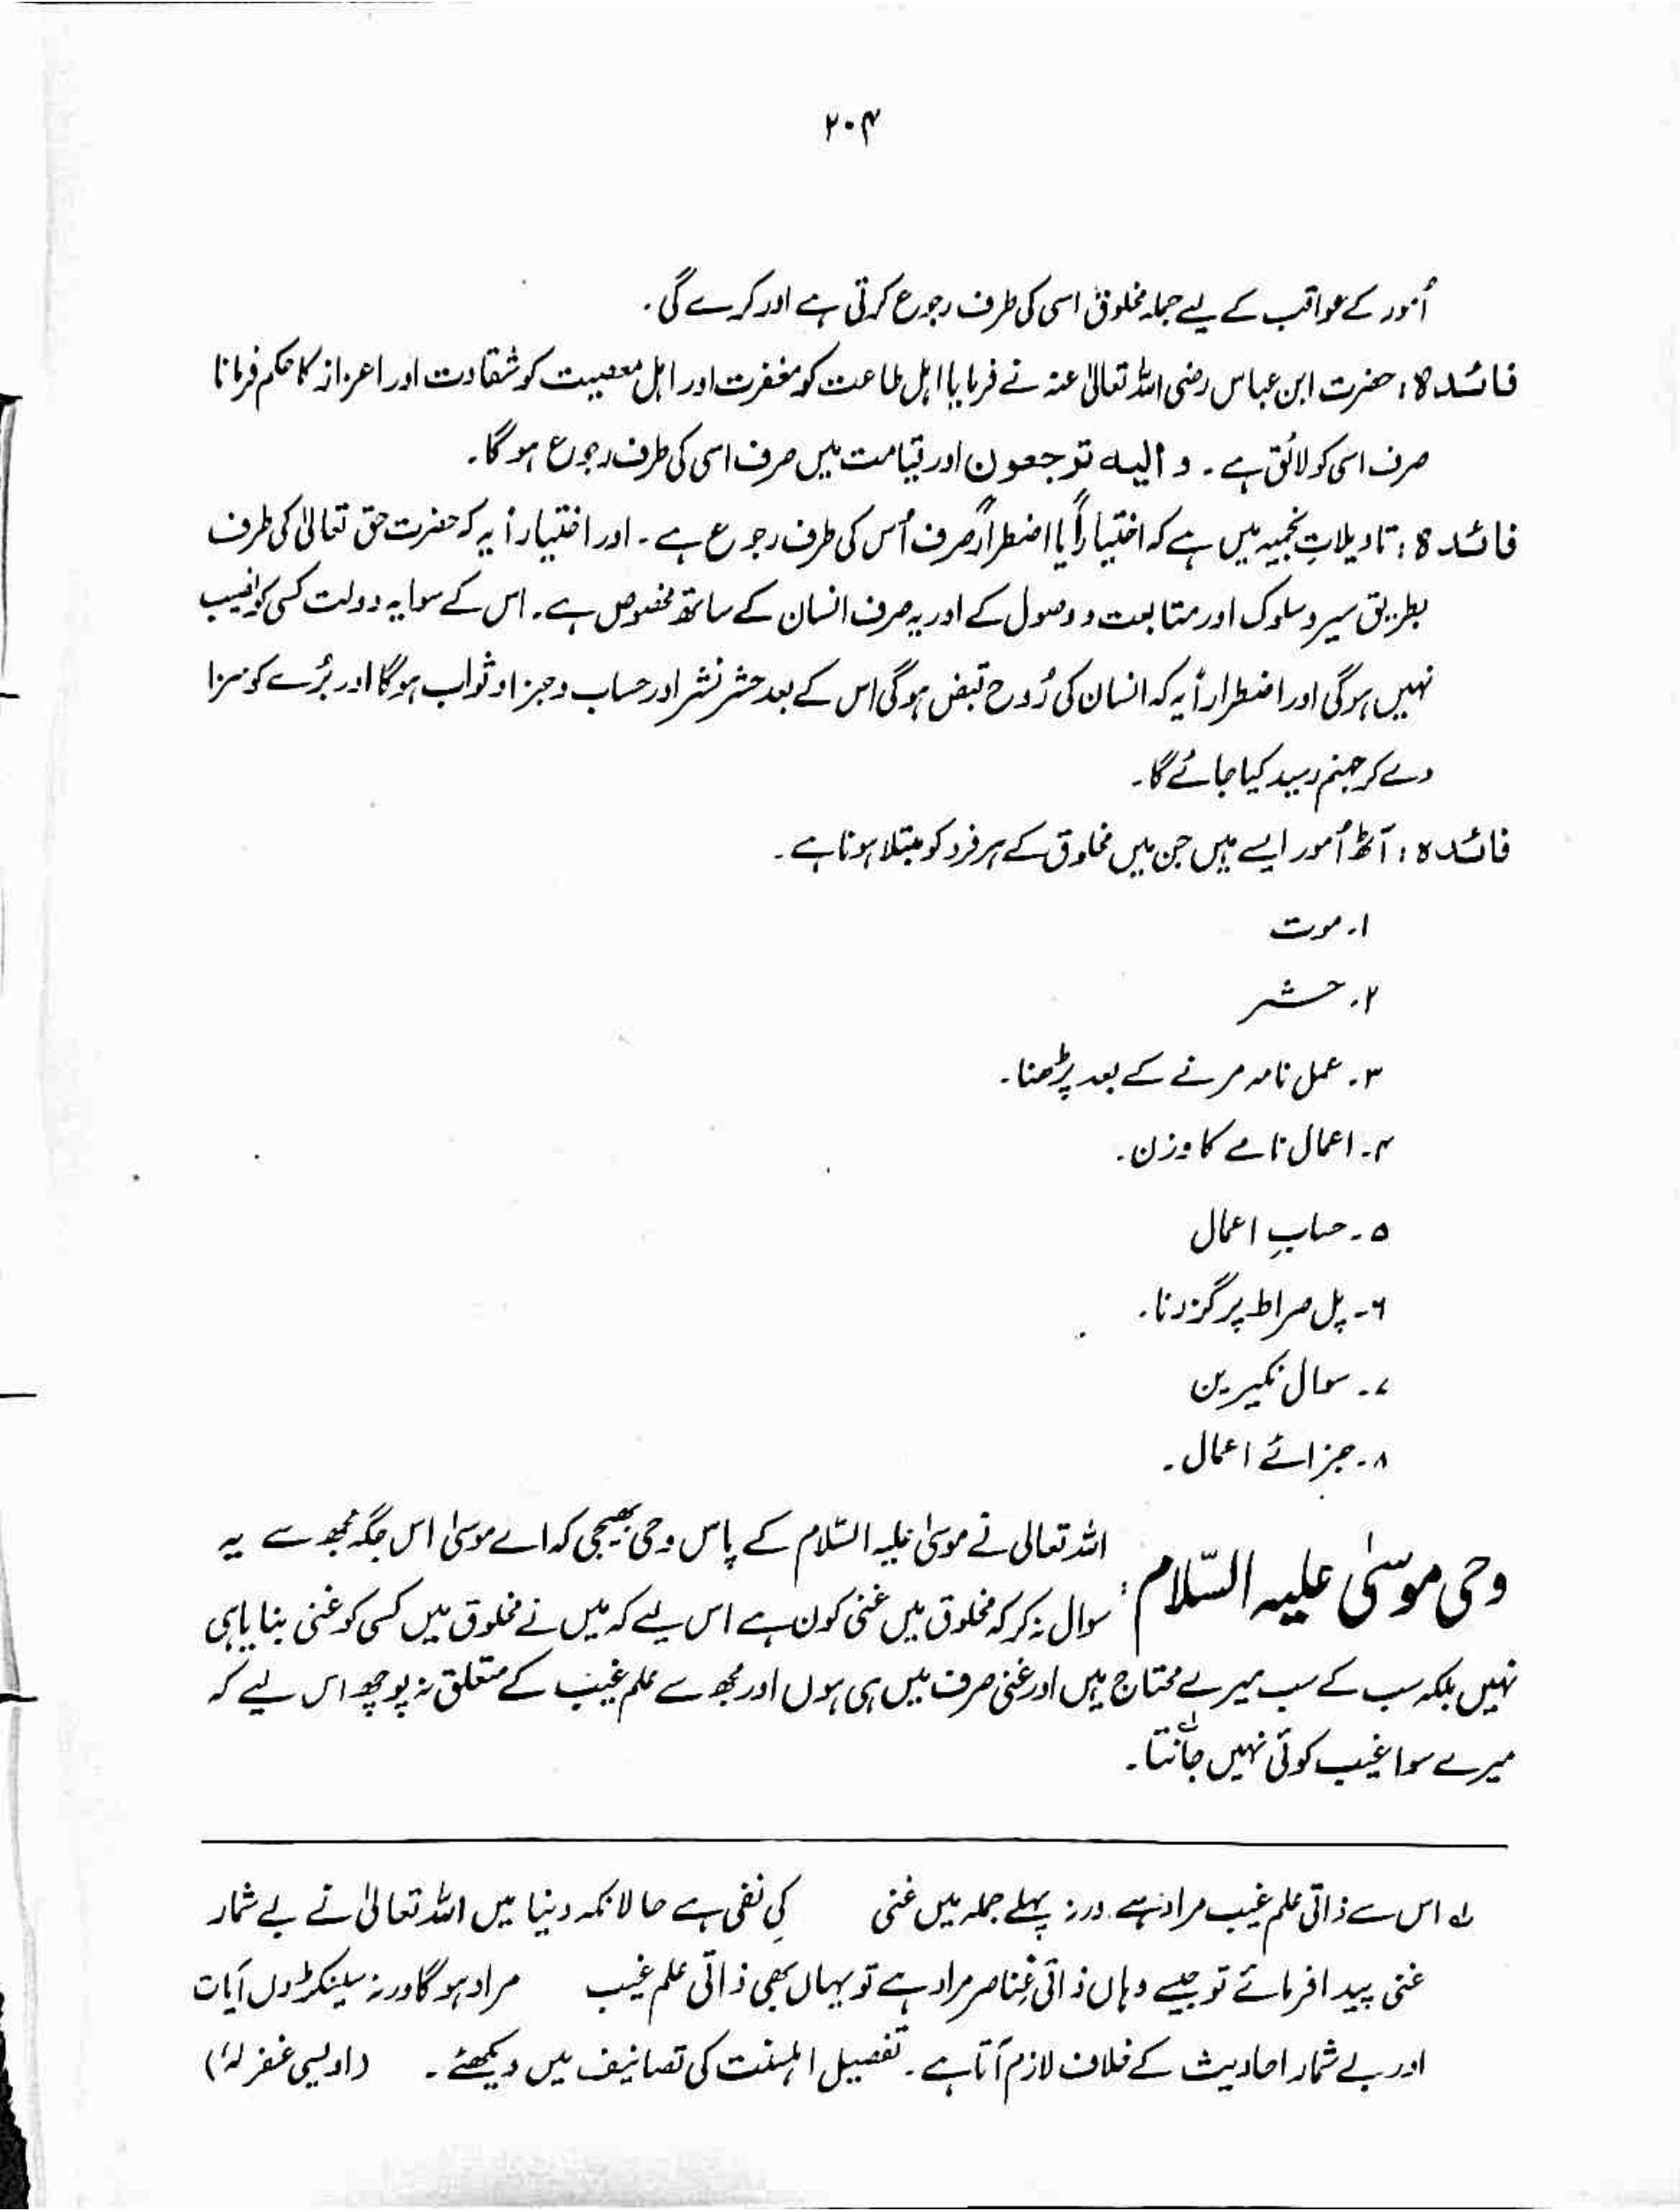 ۲۰۴
اُمور کے عواقب کے لیے جملہ مخلوق اسی کی طرف رجوع کرتی ہے اور کرے گی۔
فائدہ: حضرت ابن عباس رضی اللہ تعالیٰ عنہ نے فرمایا اہل طاعت کو مغفرت اور اہل معصیت کو شقاوت اور اعزاز کا حکم فرمانا
صرف اسی کو لائق ہے۔ و الیہ ترجعون اور قیامت میں صرف اسی کی طرف رجوع ہو گا۔
فائدہ: تاویلاتِ نجمیہ میں ہے کہ اختیاراً یا اضطراراً صرف اُس کی طرف رجوع ہے۔ اور اختیاراً یہ کہ حضرت حق تعالیٰ کی طرف
بطریق سیر و سلوک اور متابعت و وصول کے اور یہ صرف انسان کے ساتھ مخصوص ہے۔ اس کے سوا یہ دولت کسی کو نصیب
نہیں ہو گی اور اضطراراً یہ کہ انسان کی رُوح قبض ہو گی اس کے بعد حشر نشر اور حساب و جزا و ثواب ہو گا اور بُرے کو سزا
دے کر جہنم رسید کیا جائے گا۔
فائدہ: آٹھ اُمور ایسے ہیں جن میں مخلوق کے ہر فرد کو مبتلا ہونا ہے۔
۱۔ موت
۲۔ حشر
۳۔ عمل نامہ مرنے کے بعد پڑھنا۔
۴۔ اعمال نامے کا وزن۔
۵۔ حسابِ اعمال
۶۔ پل صراط پر گزرنا۔
۷۔ سوال نکیرین
۸۔ جزائے اعمال۔
وحی موسیٰ علیہ السّلام: اللہ تعالیٰ نے موسیٰ علیہ السّلام کے پاس وحی بھیجی کہ اے موسیٰ اس جگہ مجھ سے یہ
سوال نہ کر کہ مخلوق میں غنی کون ہے اس لیے کہ میں نے مخلوق میں کسی کو غنی بنایا ہی
نہیں بلکہ سب کے سب میرے محتاج ہیں اور غنی صرف میں ہی ہوں اور مجھ سے علم غیب کے متعلق نہ پوچھ اس لیے کہ
میرے سوا غیب کوئی نہیں جانتا۔
لہ اس سے ذاتی علم غیب مراد ہے ورنہ پہلے جملہ میں غنی کی نفی ہے حالانکہ دنیا میں اللہ تعالیٰ نے بے شمار
غنی پیدا فرمائے تو جیسے وہاں ذاتی غنا صر مراد ہے تو یہاں بھی ذاتی علم غیب مراد ہو گا ورنہ سینکڑوں آیات
اور بے شمار احادیث کے خلاف لازم آتا ہے۔ تفصیل اہلسنت کی تصانیف میں دیکھئے۔ (اویسی غفر لہٗ)